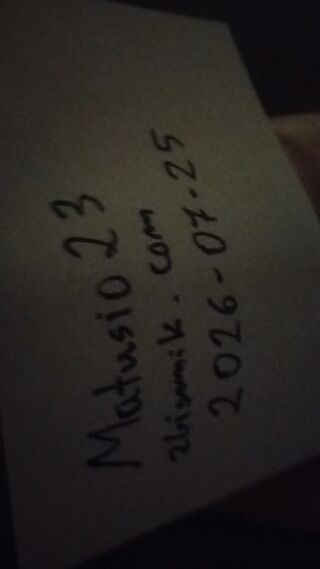 Matusio23
zbiornik.com
2026-07-25